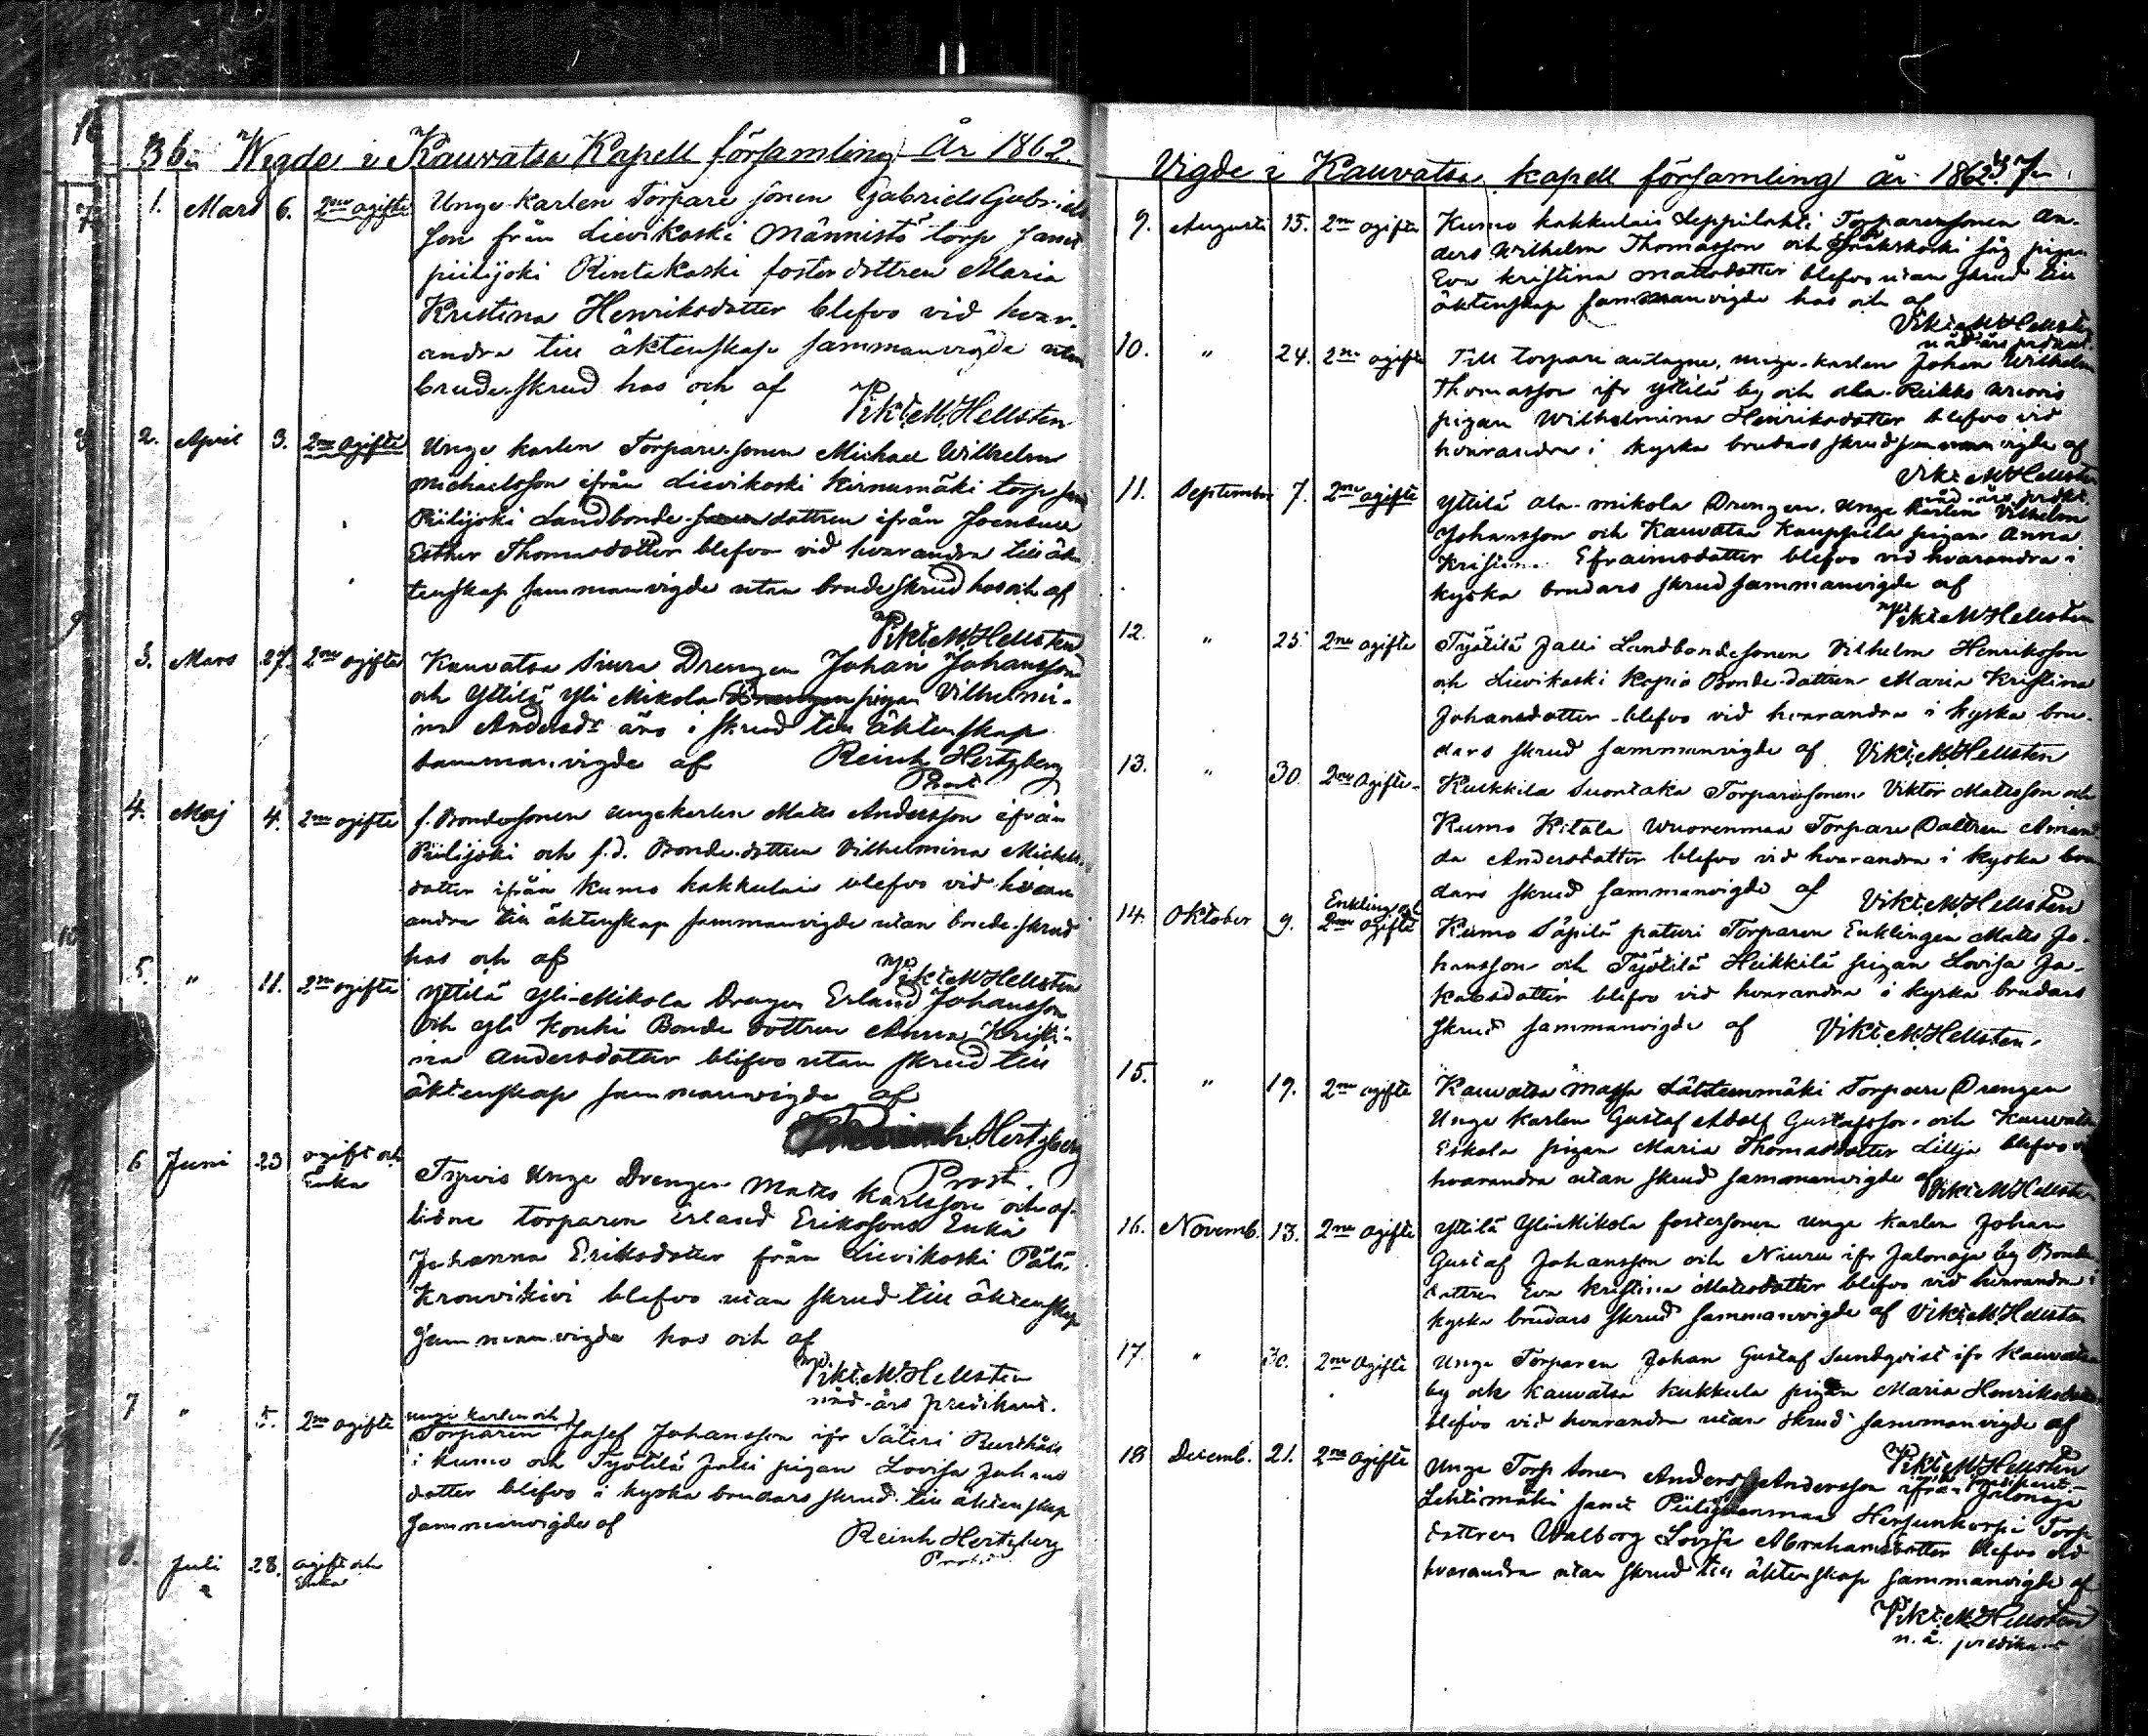 36. Wigde i Kauvatsa Kapell församling År 1862.
1. Mars 6. 2ne ogifte Unge karlen Torpare sonen Gabriel Gabriels
son från Lievikoski Männistö torp samt
piilijoki Rintakoski foster dottren Maria
Kristina Henriksdotter blefvo vid hvar-
andra till äktenskap sammanvigde utan
brudeskrud hos och af
Vikt. M. Hellsten
2. April 3. 2ne ogifte Unge karlen Torpare-sonen Michael Wilhelm
Michaelsson ifrån Lievikoski Kirnumäki torp samt
Piilijoki Landbonde dottren ifrån Joensuu
Esther Thomasdotter blefvo vid hvarandra till äk-
tenskap sammanvigde utan brudeskrud hos och af
Vikt. M. Hellsten
3. Mars 27. 2ne ogifte Kauvatsa Siura Drengen Johan Johansson
och Yttilä Yli Mikola pigan Vilhelmi-
na Andersdr äro i skrud till äktenskap
sammanvigde af Reinh Hertzberg
Prost
4. Maj 4. 2ne ogifte f. Bondesonen ungekarlen Matts Andersson ifrån
Piilijoki och f.d. Bonde-dottren Vilhelmina Michels-
dotter ifrån Kumo kakkulais blefvo vid hvar
andra till äktenskap sammanvigde utan brude-skrud
hos och af
Vikt. M. Hellsten
5. " 11. 2ne ogifte Yttilä Yli-Mikola Drengen Erland Johansson
och Yli Kouhi Bonde dottren Anna Kristi-
na Andersdotter blefvo utan skrud till
äktenskap sammanvigde af
Hertzberg
Prost.
6 Juni 23 ogift och
Enka
Tyrvis Unge Drengen Matts Karlsson och af-
lidne torparen Erland Erikssons Enka
Johanna Eriksdotter från Lievikoski
Krouvikivi blefvo utan skrud till äktenskap
sammanvigde hos och af
Vikt. M. Hellsten
nåd-års predikant.
7 " 5. 2ne ogifte unge karlen och
Torparen Josef Johansson ifr Säteri
i Kumo och Työtilä Jalli pigan Lovisa Johans
dotter blefvo i kyska brudars skrud till äktenskap
sammanvigde af
Reinh Hertzberg
Prost
8. Juli 28. ogift och
Enka
Vigde i Kauvatsa kapell församling år 1862
9. Augusti 15. 2ne ogifte Kumo kakkulais Leppilahti Torparesonen An-
ders Wilhelm Thomasson och pigan
Eva Kristina Mattsdotter blefvo utan skrud till
äktenskap sammanvigde hos och af
Vikt. M. Hellsten
nåd-års predikt.
10. " 24. 2ne ogifte Till torpare antagne, unge-karlen Johan Wilhelm
Thomasson ifr Yttilä by och
pigan Wilhelmina Henriksdotter blefvo vid
hvarandra i kyska brudars skrud sammanvigde af
Vikt. M. Hellsten
nåd-års predkt.
11. September 7. 2ne ogifte Yttilä Ala-mikola Drengen, unge karlen Vilhelm
Johansson och Kauvatsa Kauppila pigan Anna
Kristina Efraimsdotter blefvo vid hvarandra i
kyska brudars skrud sammanvigde af
Vikt. M. Hellsten
12. " 25 2ne ogifte Työtilä Jalli Landbondesonen Vilhelm Henriksson
och Lievikoski Kapia Bonde-dottren Maria Kristina
Johansdotter blefvo vid hvarandra i kyska bru-
dars skrud sammanvigde af Vikt. M. Hellsten
13. " 30. 2ne ogifte Kukkila Suontaka Torparesonen Viktor Mattsson och
Kumo Kitala Wuorenmaa Torpare Dottren Aman
da Andersdotter blefvo vid hvarandra i kyska bru
dars skrud sammanvigde af Vikt. M. Hellsten
14. Oktober 9. Enkling och
2ne ogifte
Kumo Säpilä paturi Torparen Enklingen Matts Jo-
hansson och Työtilä Heikkilä pigan Lovisa Ja-
kobsdotter blefvo vid hvarandra i kyska brudars
skrud sammanvigde af Vikt. M. Hellsten.
15. " 19. 2ne ogifte Kauvatsa Massa Lähteenmäki Torpare Drengen
Unge karlen Gustaf Adolf Gustafsson och Kauvatsa
Eskola pigan Maria Thomasdotter Lillja blefvo vi
hvarandra utan skrud sammanvigde af Vikt. M. Hellsten
16. Novemb. 13. 2ne ogifte Yttilä Yli-Mikola fostersonen unge karlen Johan
Gustaf Johansson och Niuru ifr Jalonoja by Bonde
dottren Eva Kristina Matsdotter blefvo vid hvarandra i
kyska brudars skrud sammanvigde af Vikt. M. Hellsten
17. " 30. 2ne ogifte Unge Torparen Johan Gustaf Sundqvist ifr Kauvatsa
by och Kauvatsa kukkula pigan Maria Henriksdotter
blefvo vid hvarandra utan skrud sammanvigde af
Vikt. M. Hellsten
18 Decemb. 21. 2ne ogifte Unge Torp sonen Anders Andersson ifrån Jalonoja
Lehtimäki samt Piilijoenmaa Torp
dottren Walborg Lovisa Abrahamsdotter blefvo vid
hvarandra utan skrud till äktenskap sammanvigde af
Vikt. M. Hellsten
n. å. predikant